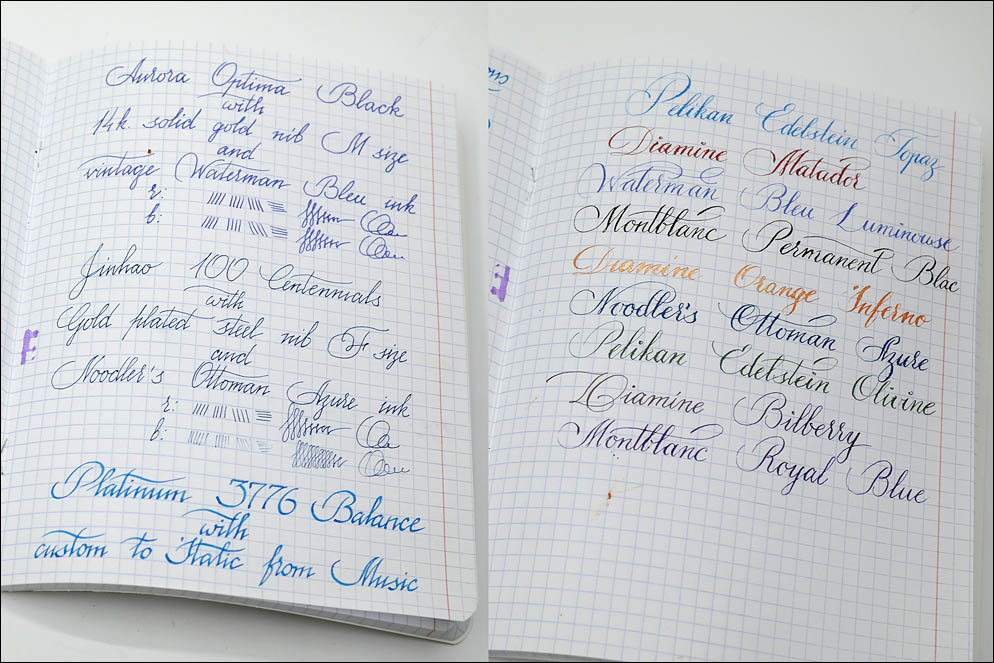 Aurora Optima Black
with
14k. solid gold nib M size
and
vintage Waterman Bleu ink
r:
b:
Jinhao 100 Centennials
with
Gold plated steel nib F size
and
Noodler's Ottoman Azure ink
r:
b:
Platinum 3776 Balance
with
custom to Italic from Music
Pelikan Edelstein Topaz
Diamine Matador
Waterman Bleu Luminouse
Montblanc Permanent Blac
Diamine Orange Inferno
Noodler's Ottoman Azure
Pelikan Edelstein Olivine
Diamine Bilberry
Montblanc Royal Blue